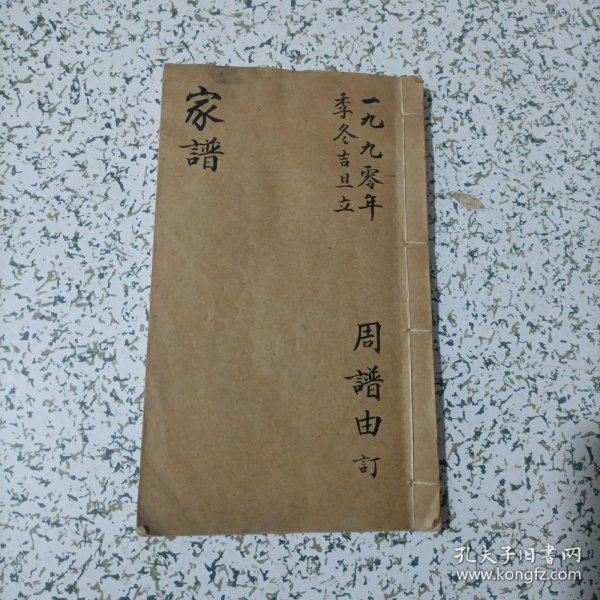 一九九零年
季冬吉旦立
周譜由訂
家譜
孔夫子旧书网
www.kongfz.com